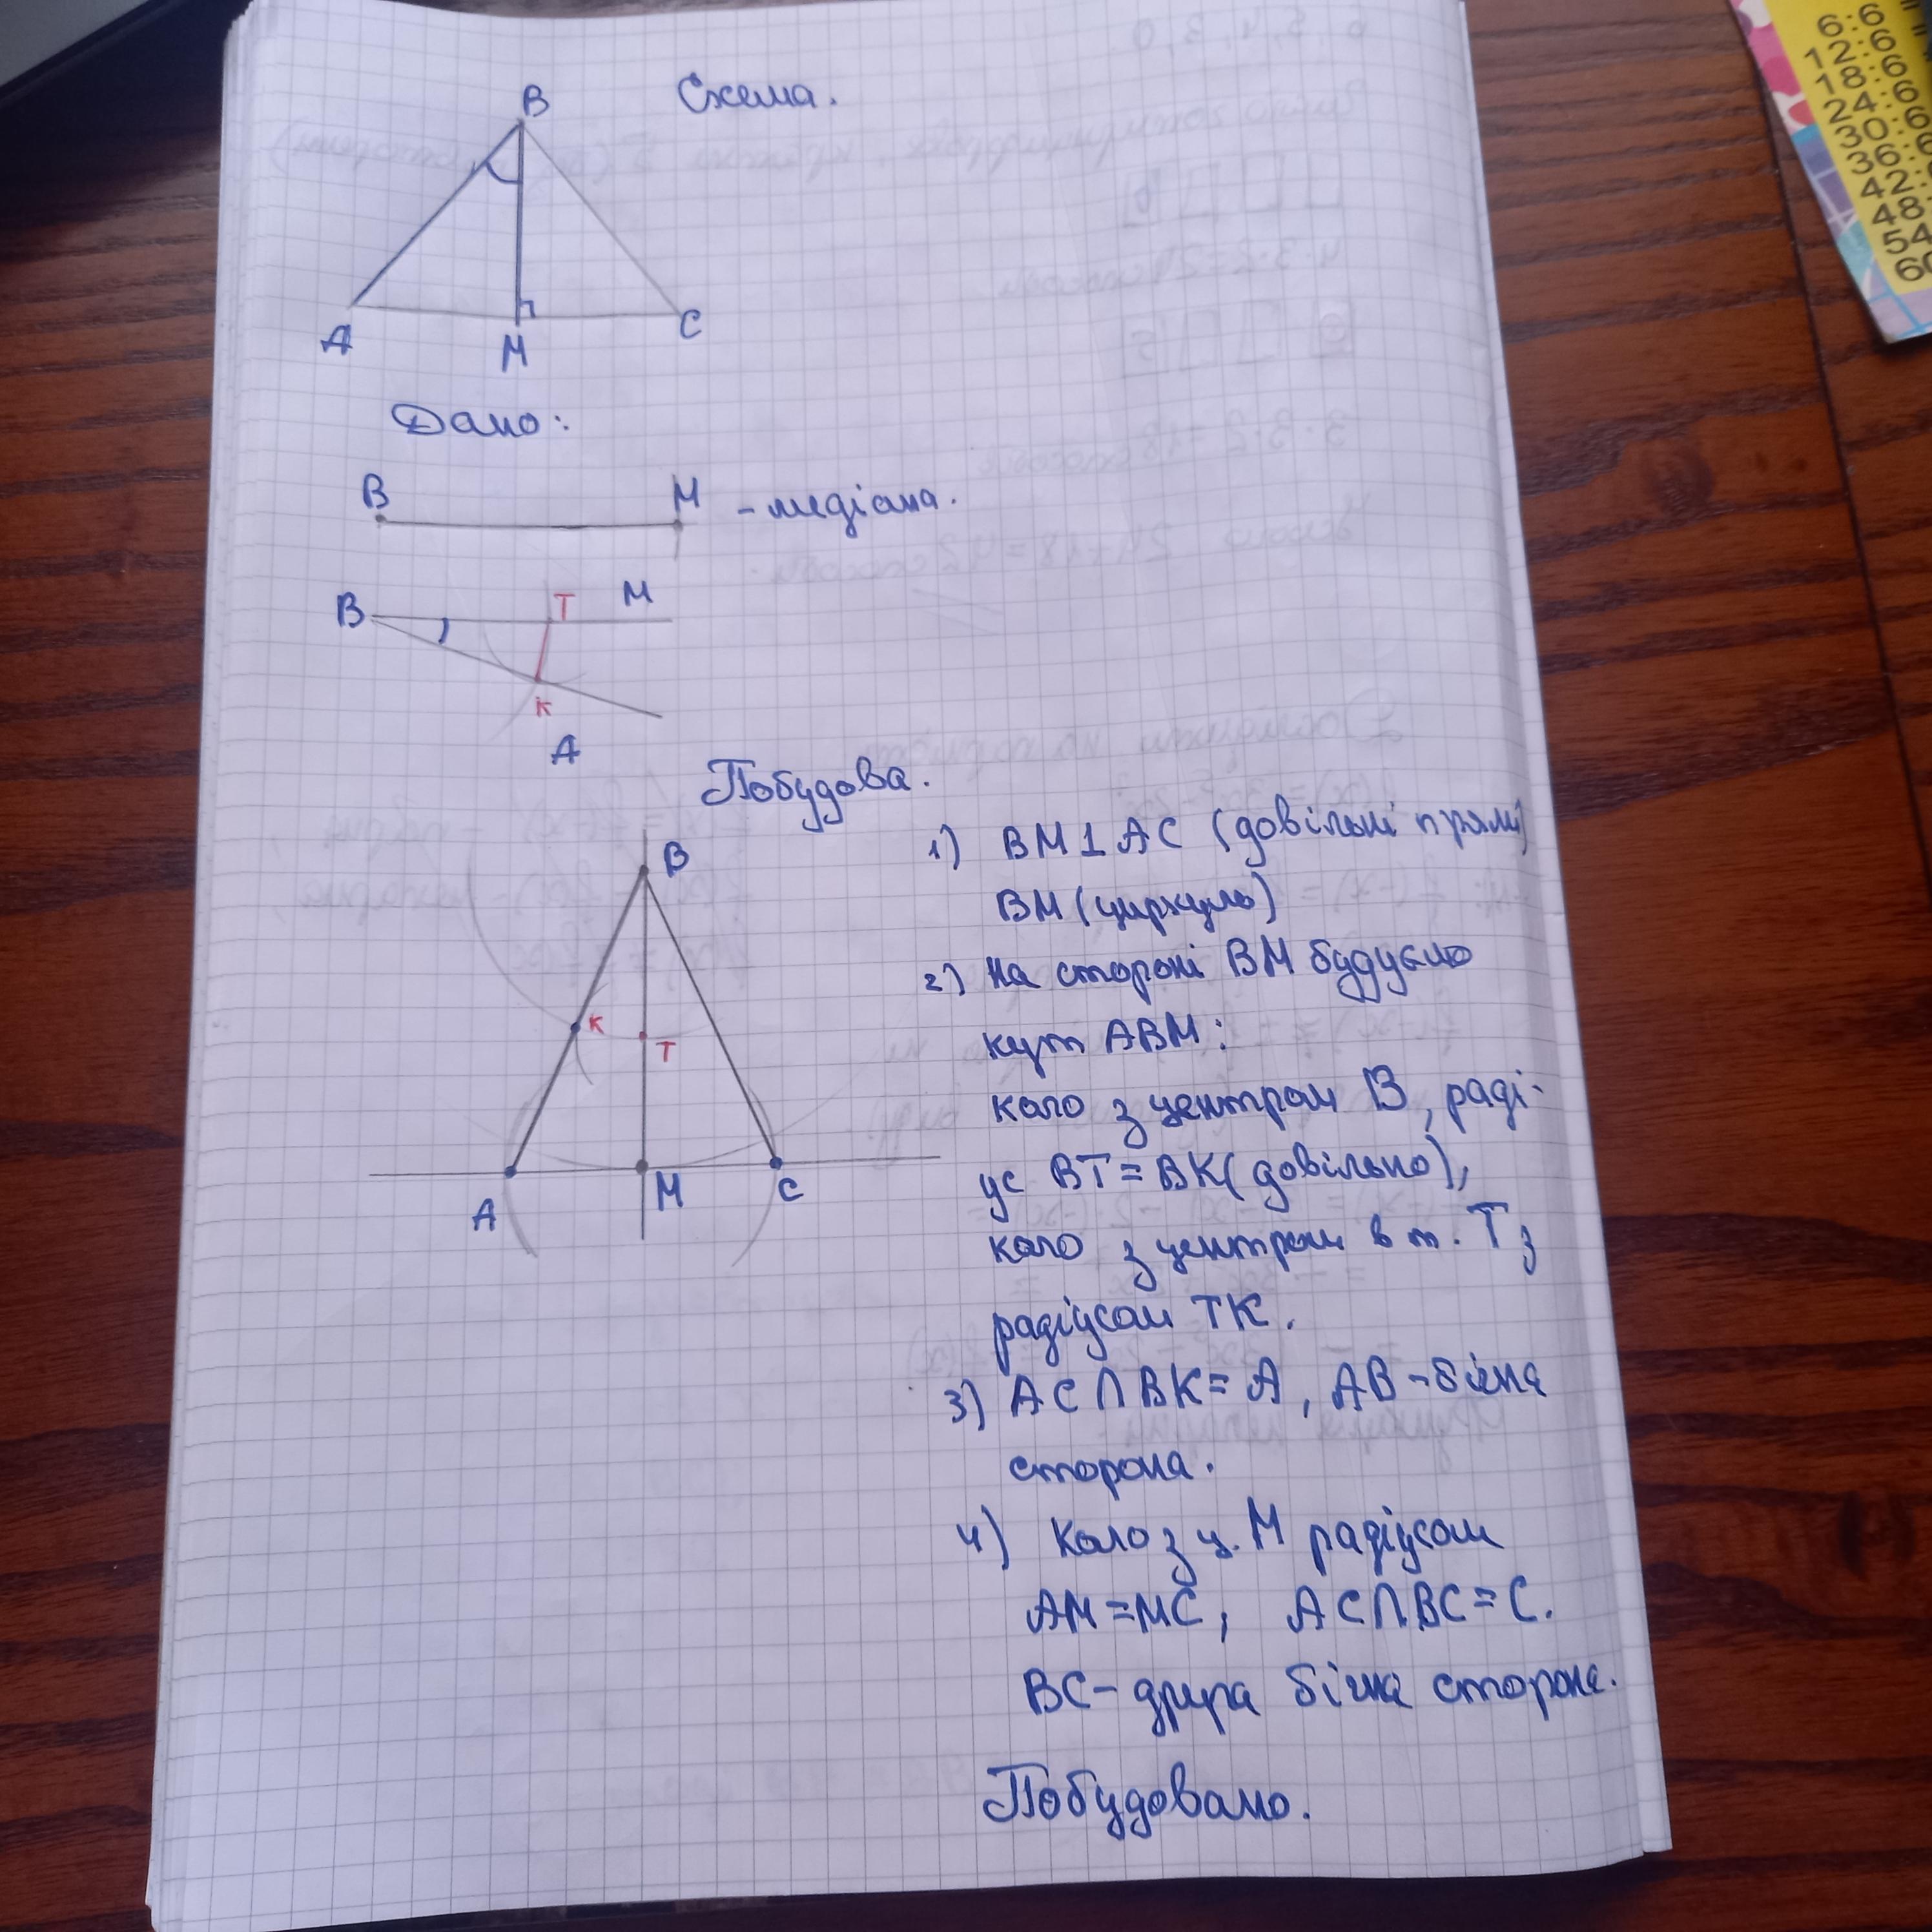 Схема.
B
A
M
C
Дано:
B
M
- медіана.
B
T
M
K
A
Побудова.
B
K
T
A
M
C
1) BM⊥AC (довільні прямі)
BM (циркуль)
2) на стороні BM будуємо
кут ABM:
коло з центром B, раді-
ус BT=BK(довільно),
коло з центром в т. T з
радіусом TK.
3) AC∩BK=A, AB-бічна
сторона.
4) Коло з ц. M радіусом
AM=MC, AC∩BC=C.
BC- друга бічна сторона.
Побудовано.
6:6
12:6
18:6
24:6
30:6
36:6
42:
48:
54
60